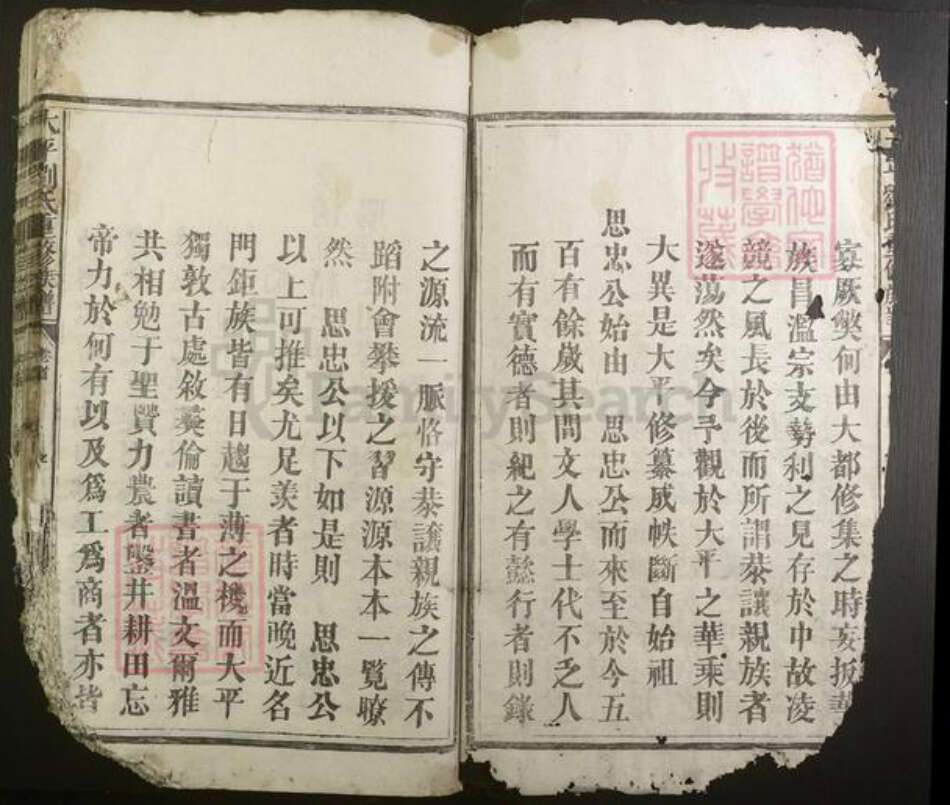 寡厥獘何由大都修集之時妄扳華
族昌溫宗支勢利之見存於中故凌
競之風長於後而所謂恭讓親族者
遂蕩然矣今予觀於大平之華乘則
大異是大平修纂成帙斷自始祖
思忠公始由 思忠公而來至於今五
百有餘歲其間文人學士代不乏人
而有實德者則紀之有懿行者則錄
之源流一脈恪守恭讓親族之傳不
蹈附會攀援之習源源本本一覧瞭
然 思忠公以下如是則 思忠公
以上可推矣尤足羨者時當晚近名
門鉅族皆有日趨于薄之機而大平
獨敦古處敘彝倫讀書者溫文爾雅
共相勉于聖賢力農者鑿井耕田忘
帝力於何有以及爲工爲商者亦皆
大平劉氏重修族譜 卷首
猶他家譜學會收藏
FamilySearch